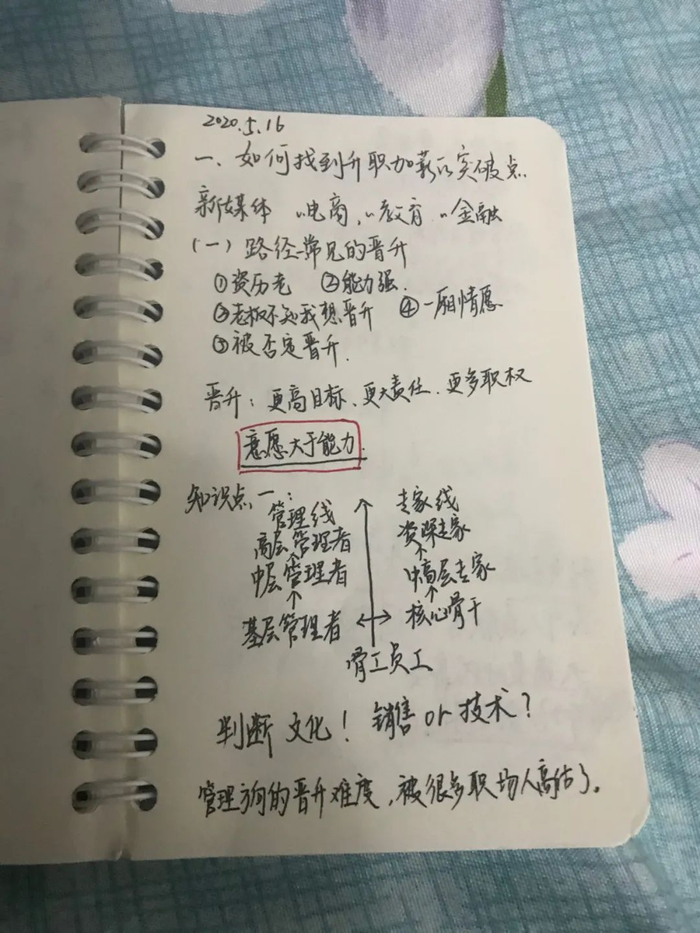 2020.5.16
一、如何找到升职加薪的突破点
新媒体 〃电商,〃教育 〃金融
(一) 路径-常见的晋升
①资历老 ②能力强.
③老板不知我想晋升 ④一厢情愿
⑤被否定晋升.
晋升:更高目标、更大责任.更多职权
意愿大于能力.
知识点一:
管理线 专家线
高层管理者 资深专家
中层管理者 中高层专家
基层管理者 ↔ 核心骨干
骨工员工
判断文化! 销售or技术?
管理方向的晋升难度,被很多职场人高估了。